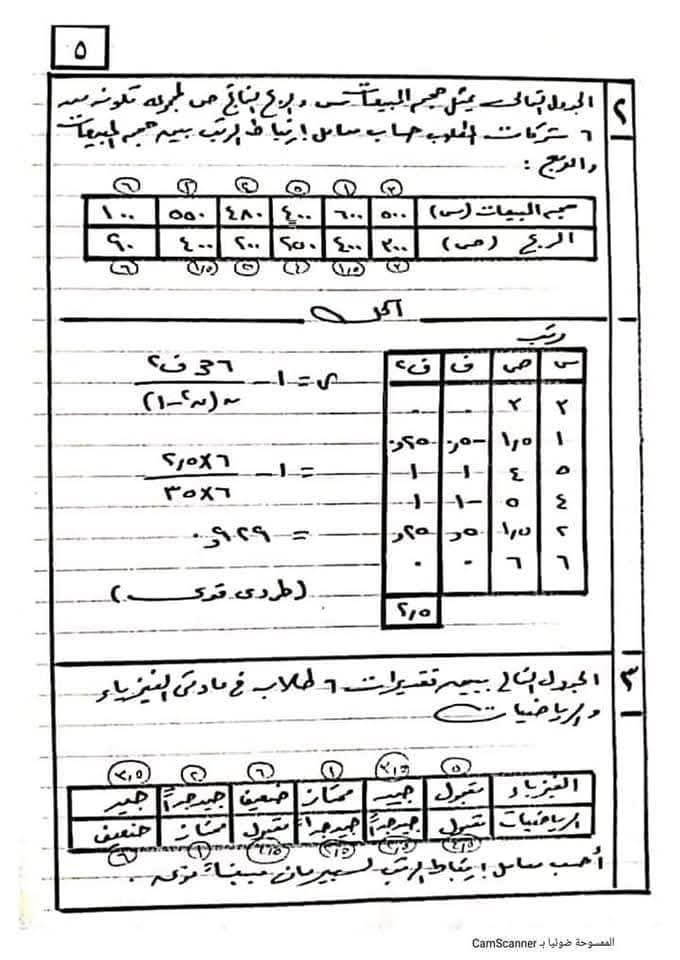 ٥
٢
الجدول التالى يمثل حجم المبيعات س والربح الناتج ص لمجموعة تكونه من
٦ شركات المطلوب حساب معامل إرتباط الرتب بين حجم المبيعات
والربح :
③ ① ⑤ ④ ② ⑥
حجم المبيعات (س) ٥٠٠ ٦٠٠ ٤٠٠ ٤٨٠ ٥٥٠ ١٠٠
الربح (ص) ٣٠٠ ٤٠٠ ٢٥٠ ٢٠٠ ٤٠٠ ٩٠
٣ ١٫٥ ٤ ٥ ١٫٥ ٦
الحل
رتب
س ص ف ف٢
٣ ٣ ٠ ٠
١ ١٫٥ -٥٫ ٢٥٫
٥ ٤ ١ ١
٤ ٥ -١ ١
٢ ١٫٥ ٥٫ ٢٥٫
٦ ٦ ٠ ٠
٢٫٥
ر = ١ - ٦ مجـ ف٢ / ن (ن٢ - ١)
= ١ - ٦×٢٫٥ / ٦×٣٥
= ٩٢٩٫٠
(طردى قوى)
٣
الجدول التالى يبين تقديرات ٦ طلاب فى مادتى الفيزياء
والرياضيات
⑤ ٣٫٥ ① ⑥ ② ٣٫٥
الفيزياء مقبول جيد ممتاز ضعيف جيد جداً جيد
الرياضيات مقبول جيد جداً جيد جداً مقبول ممتاز ضعيف
٤٫٥ ٢٫٥ ٢٫٥ ٤٫٥ ١ ٦
أحسب معامل إرتباط الرتب لسبيرمان مبيناً نوعه .
الممسوحة ضوئيا بـ CamScanner